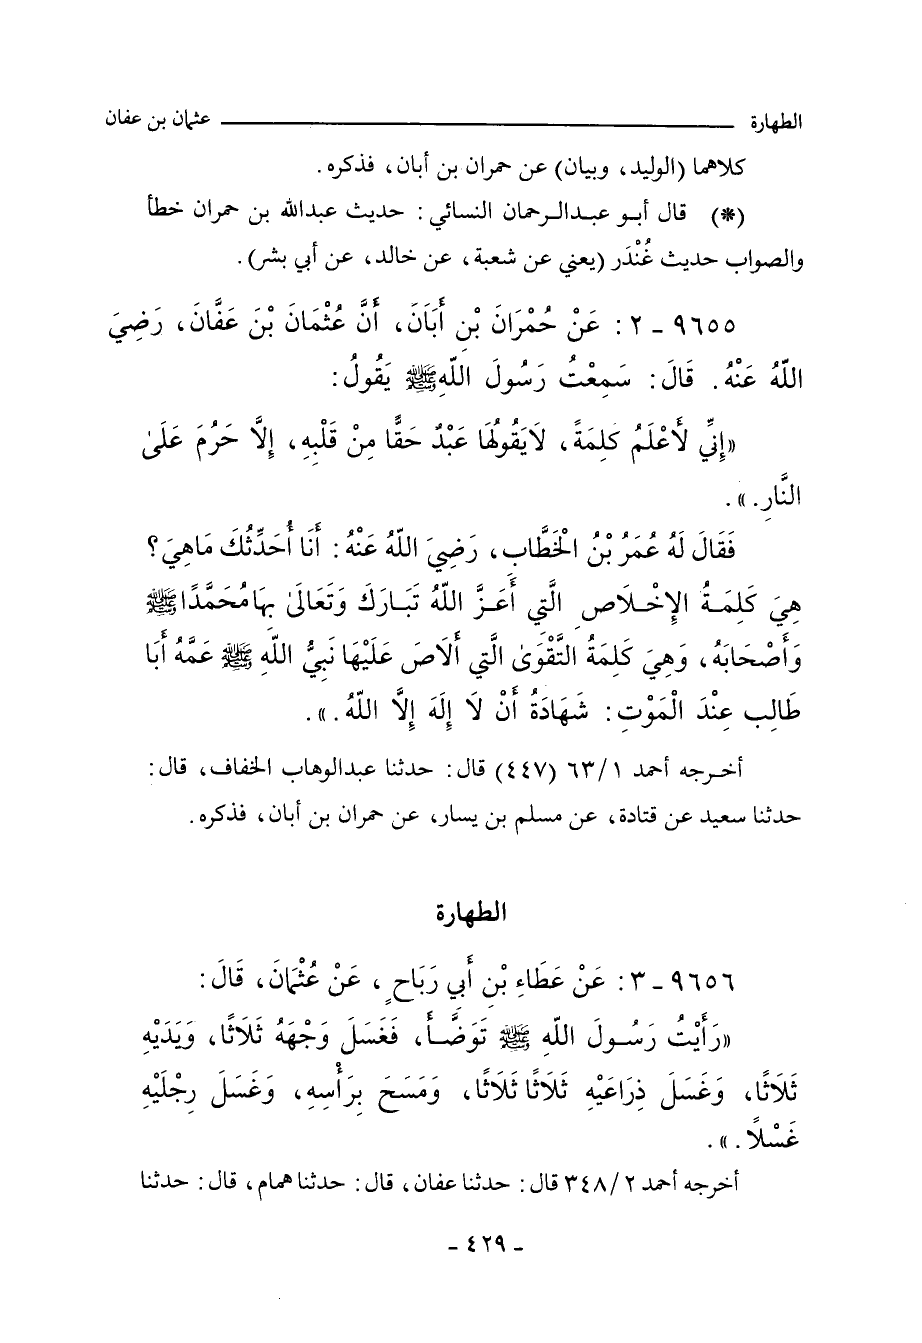 الطهارة ــــــــــــــــــــ عثمان بن عفان
كلاهما (الوليد، وبيان) عن حمران بن أبان، فذكره.
(*) قال أبو عبدالرحمان النسائي: حديث عبدالله بن حمران خطأ
والصواب حديث غُنْدَر (يعني عن شعبة، عن خالد، عن أبي بشر).
٩٦٥٥ - ٢: عَنْ حُمْرَانَ بْنِ أَبَانَ، أَنَّ عُثْمَانَ بْنَ عَفَّانَ، رَضِيَ
اللّهُ عَنْهُ. قَالَ: سَمِعْتُ رَسُولَ اللّهِ ﷺ يَقُولُ:
«إِنِّي لأَعْلَمُ كَلِمَةً، لَايَقُولُهَا عَبْدٌ حَقًّا مِنْ قَلْبِهِ، إِلَّا حَرُمَ عَلَىٰ
النَّارِ.».
فَقَالَ لَهُ عُمَرُ بْنُ الْخَطَّابِ، رَضِيَ اللّهُ عَنْهُ: أَنَا أُحَدِّثُكَ مَاهِيَ؟
هِيَ كَلِمَةُ الإِخْلَاصِ الَّتِي أَعَزَّ اللّهُ تَبَارَكَ وَتَعَالَىٰ بِهَا مُحَمَّدًا ﷺ
وَأَصْحَابَهُ، وَهِيَ كَلِمَةُ التَّقْوَىٰ الَّتِي أَلَاصَ عَلَيْهَا نَبِيُّ اللّهِ ﷺ عَمَّهُ أَبَا
طَالِبٍ عِنْدَ الْمَوْتِ: شَهَادَةُ أَنْ لَا إِلَهَ إِلَّا اللّهُ.».
أخرجه أحمد ١/٦٣ (٤٤٧) قال: حدثنا عبدالوهاب الخفاف، قال:
حدثنا سعيد عن قتادة، عن مسلم بن يسار، عن حمران بن أبان، فذكره.
الطهارة
٩٦٥٦ - ٣: عَنْ عَطَاءِ بْنِ أَبِي رَبَاحٍ، عَنْ عُثْمَانَ، قَالَ:
«رَأَيْتُ رَسُولَ اللّهِ ﷺ تَوَضَّأَ، فَغَسَلَ وَجْهَهُ ثَلَاثًا، وَيَدَيْهِ
ثَلَاثًا، وَغَسَلَ ذِرَاعَيْهِ ثَلَاثًا ثَلَاثًا، وَمَسَحَ بِرَأْسِهِ، وَغَسَلَ رِجْلَيْهِ
غَسْلًا.».
أخرجه أحمد ٢/٣٤٨ قال: حدثنا عفان، قال: حدثنا همام، قال: حدثنا
- ٤٢٩ -